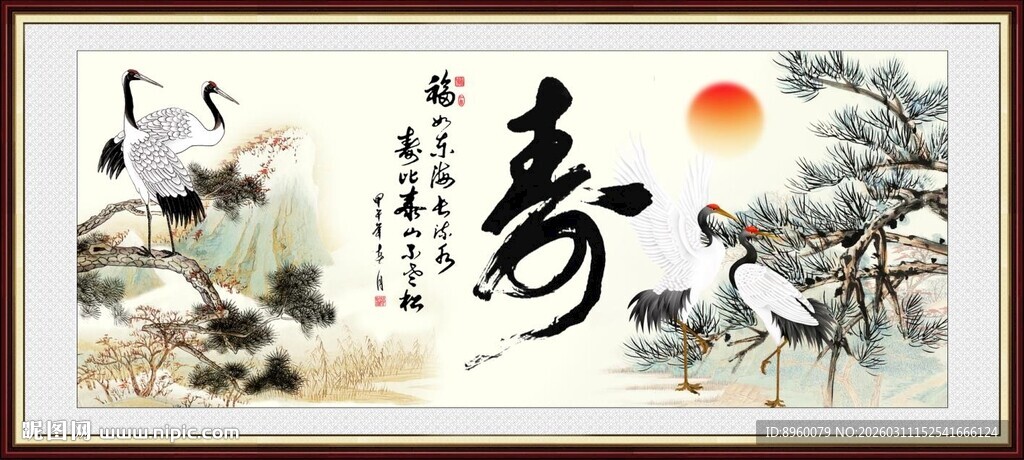 福如东海长流水
寿比泰山不老松
甲午年春月
寿
昵图网 www.nipic.com
ID:8960079 NO:20260311152541666124